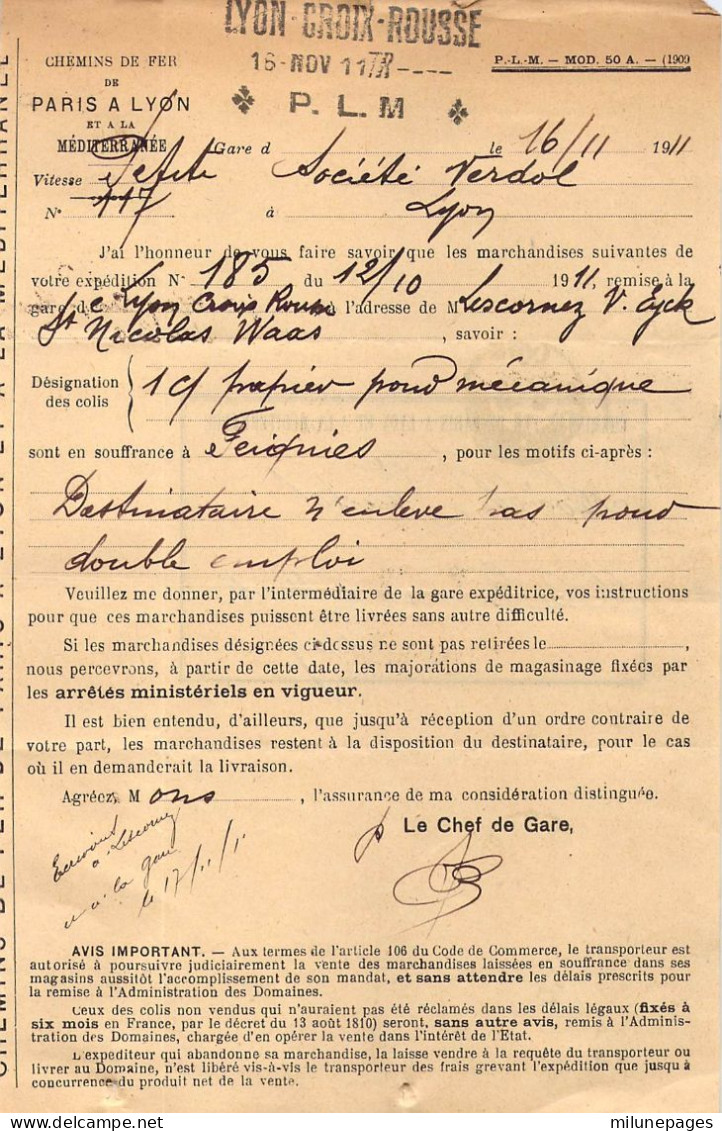 LYON-CROIX-ROUSSE
16-NOV 11
P. L. M
CHEMINS DE FER
DE
PARIS A LYON
ET A LA
MÉDITERRANÉE
P.-L.-M. — MOD. 50 A. — (1909
Gare d le 16/11 1911
Vitesse Petite Société Verdol
N° 117 à Lyon
J'ai l'honneur de vous faire savoir que les marchandises suivantes de
votre expédition N° 185 du 12/10 1911, remise à la
gare de Lyon Croix Rousse à l'adresse de M Lescornez V. Eyck
St Nicolas Waas, savoir :
Désignation
des colis
1 c/ papier pour mécanique
sont en souffrance à Feignies, pour les motifs ci-après :
Destinataire n'enlève pas pour
double emploi
Veuillez me donner, par l'intermédiaire de la gare expéditrice, vos instructions
pour que ces marchandises puissent être livrées sans autre difficulté.
Si les marchandises désignées ci-dessus ne sont pas retirées le ,
nous percevrons, à partir de cette date, les majorations de magasinage fixées par
les arrêtés ministériels en vigueur.
Il est bien entendu, d'ailleurs, que jusqu'à réception d'un ordre contraire de
votre part, les marchandises restent à la disposition du destinataire, pour le cas
où il en demanderait la livraison.
Agréez, Mons, l'assurance de ma considération distinguée.
Le Chef de Gare,
à Lescornez
et à la gare
le 17/11/11
AVIS IMPORTANT. — Aux termes de l'article 106 du Code de Commerce, le transporteur est
autorisé à poursuivre judiciairement la vente des marchandises laissées en souffrance dans ses
magasins aussitôt l'accomplissement de son mandat, et sans attendre les délais prescrits pour
la remise à l'Administration des Domaines.
Ceux des colis non vendus qui n'auraient pas été réclamés dans les délais légaux (fixés à
six mois en France, par le décret du 13 août 1810) seront, sans autre avis, remis à l'Adminis-
tration des Domaines, chargée d'en opérer la vente dans l'intérêt de l'Etat.
L'expéditeur qui abandonne sa marchandise, la laisse vendre à la requête du transporteur ou
livrer au Domaine, n'est libéré vis-à-vis le transporteur des frais grevant l'expédition que jusqu'à
concurrence du produit net de la vente.
delcampe.net
milunepages